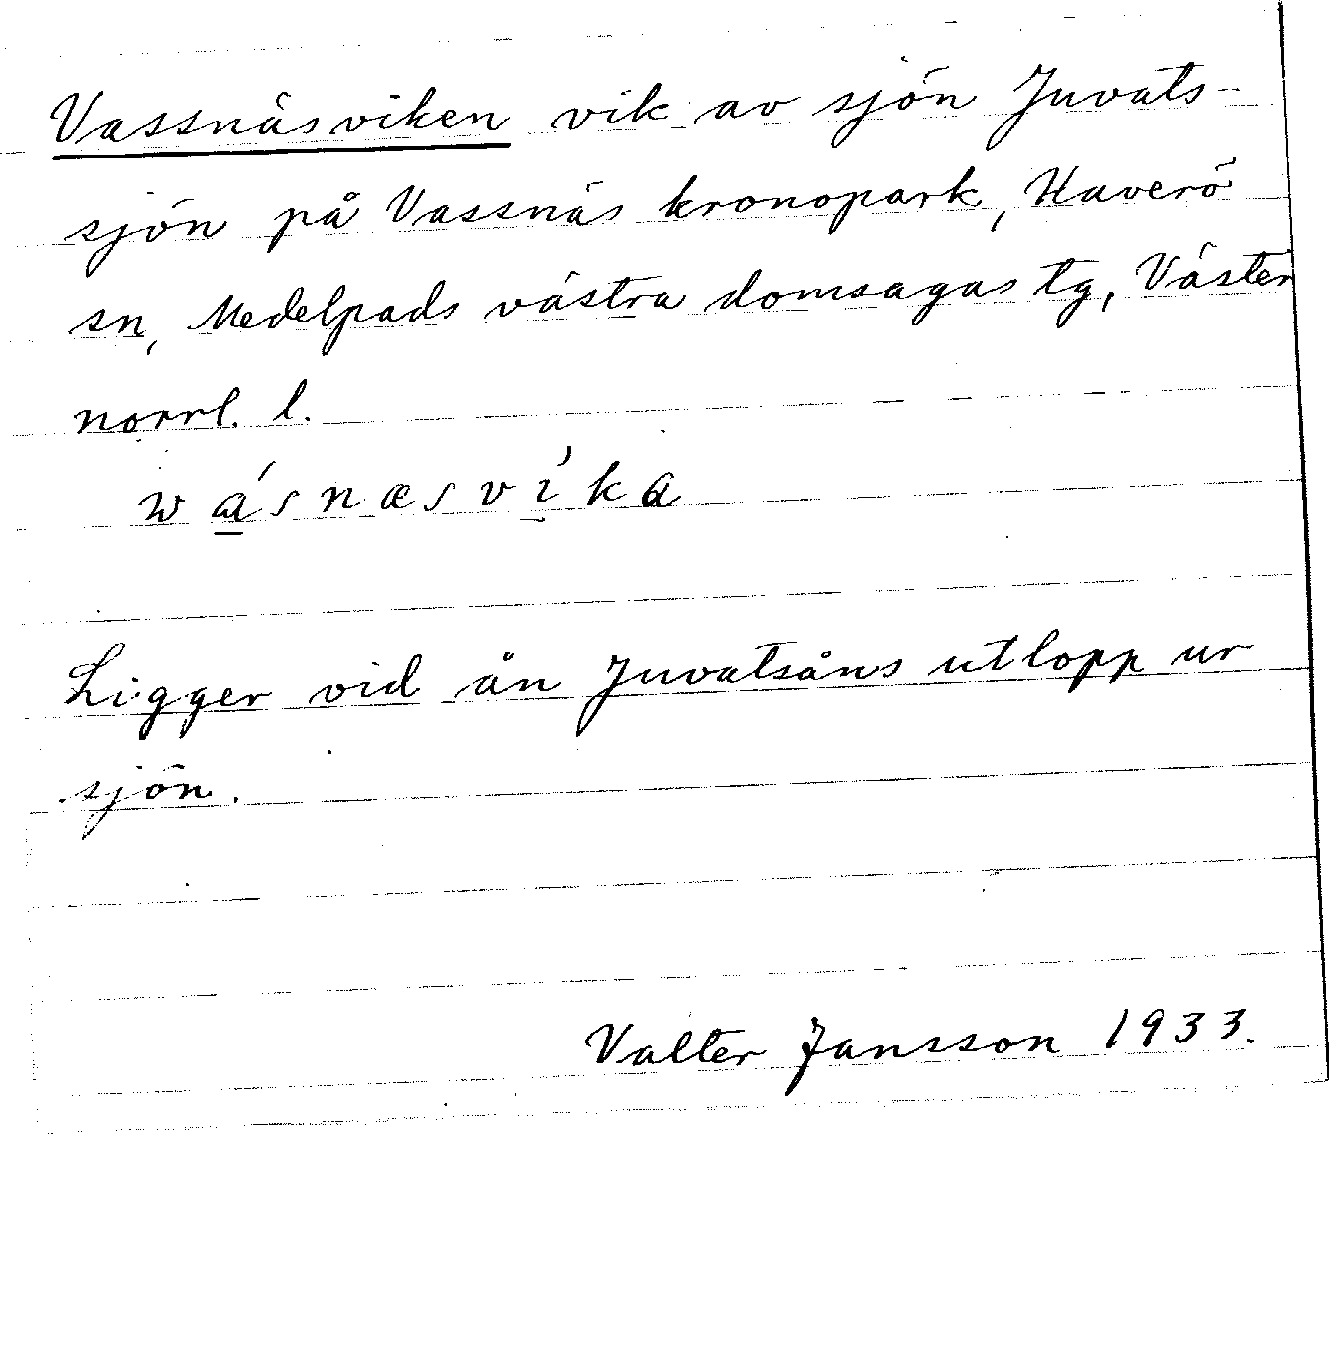 Vassnäsviken vik av sjön Juvats-
sjön på Vassnäs kronopark, Haverö
sn, Medelpads västra domsagas tg, Väster
norrl. l.
wá̲snæsví̮ka
Ligger vid ån Juvatsåns utlopp ur
sjön.
Valter Jansson 1933.